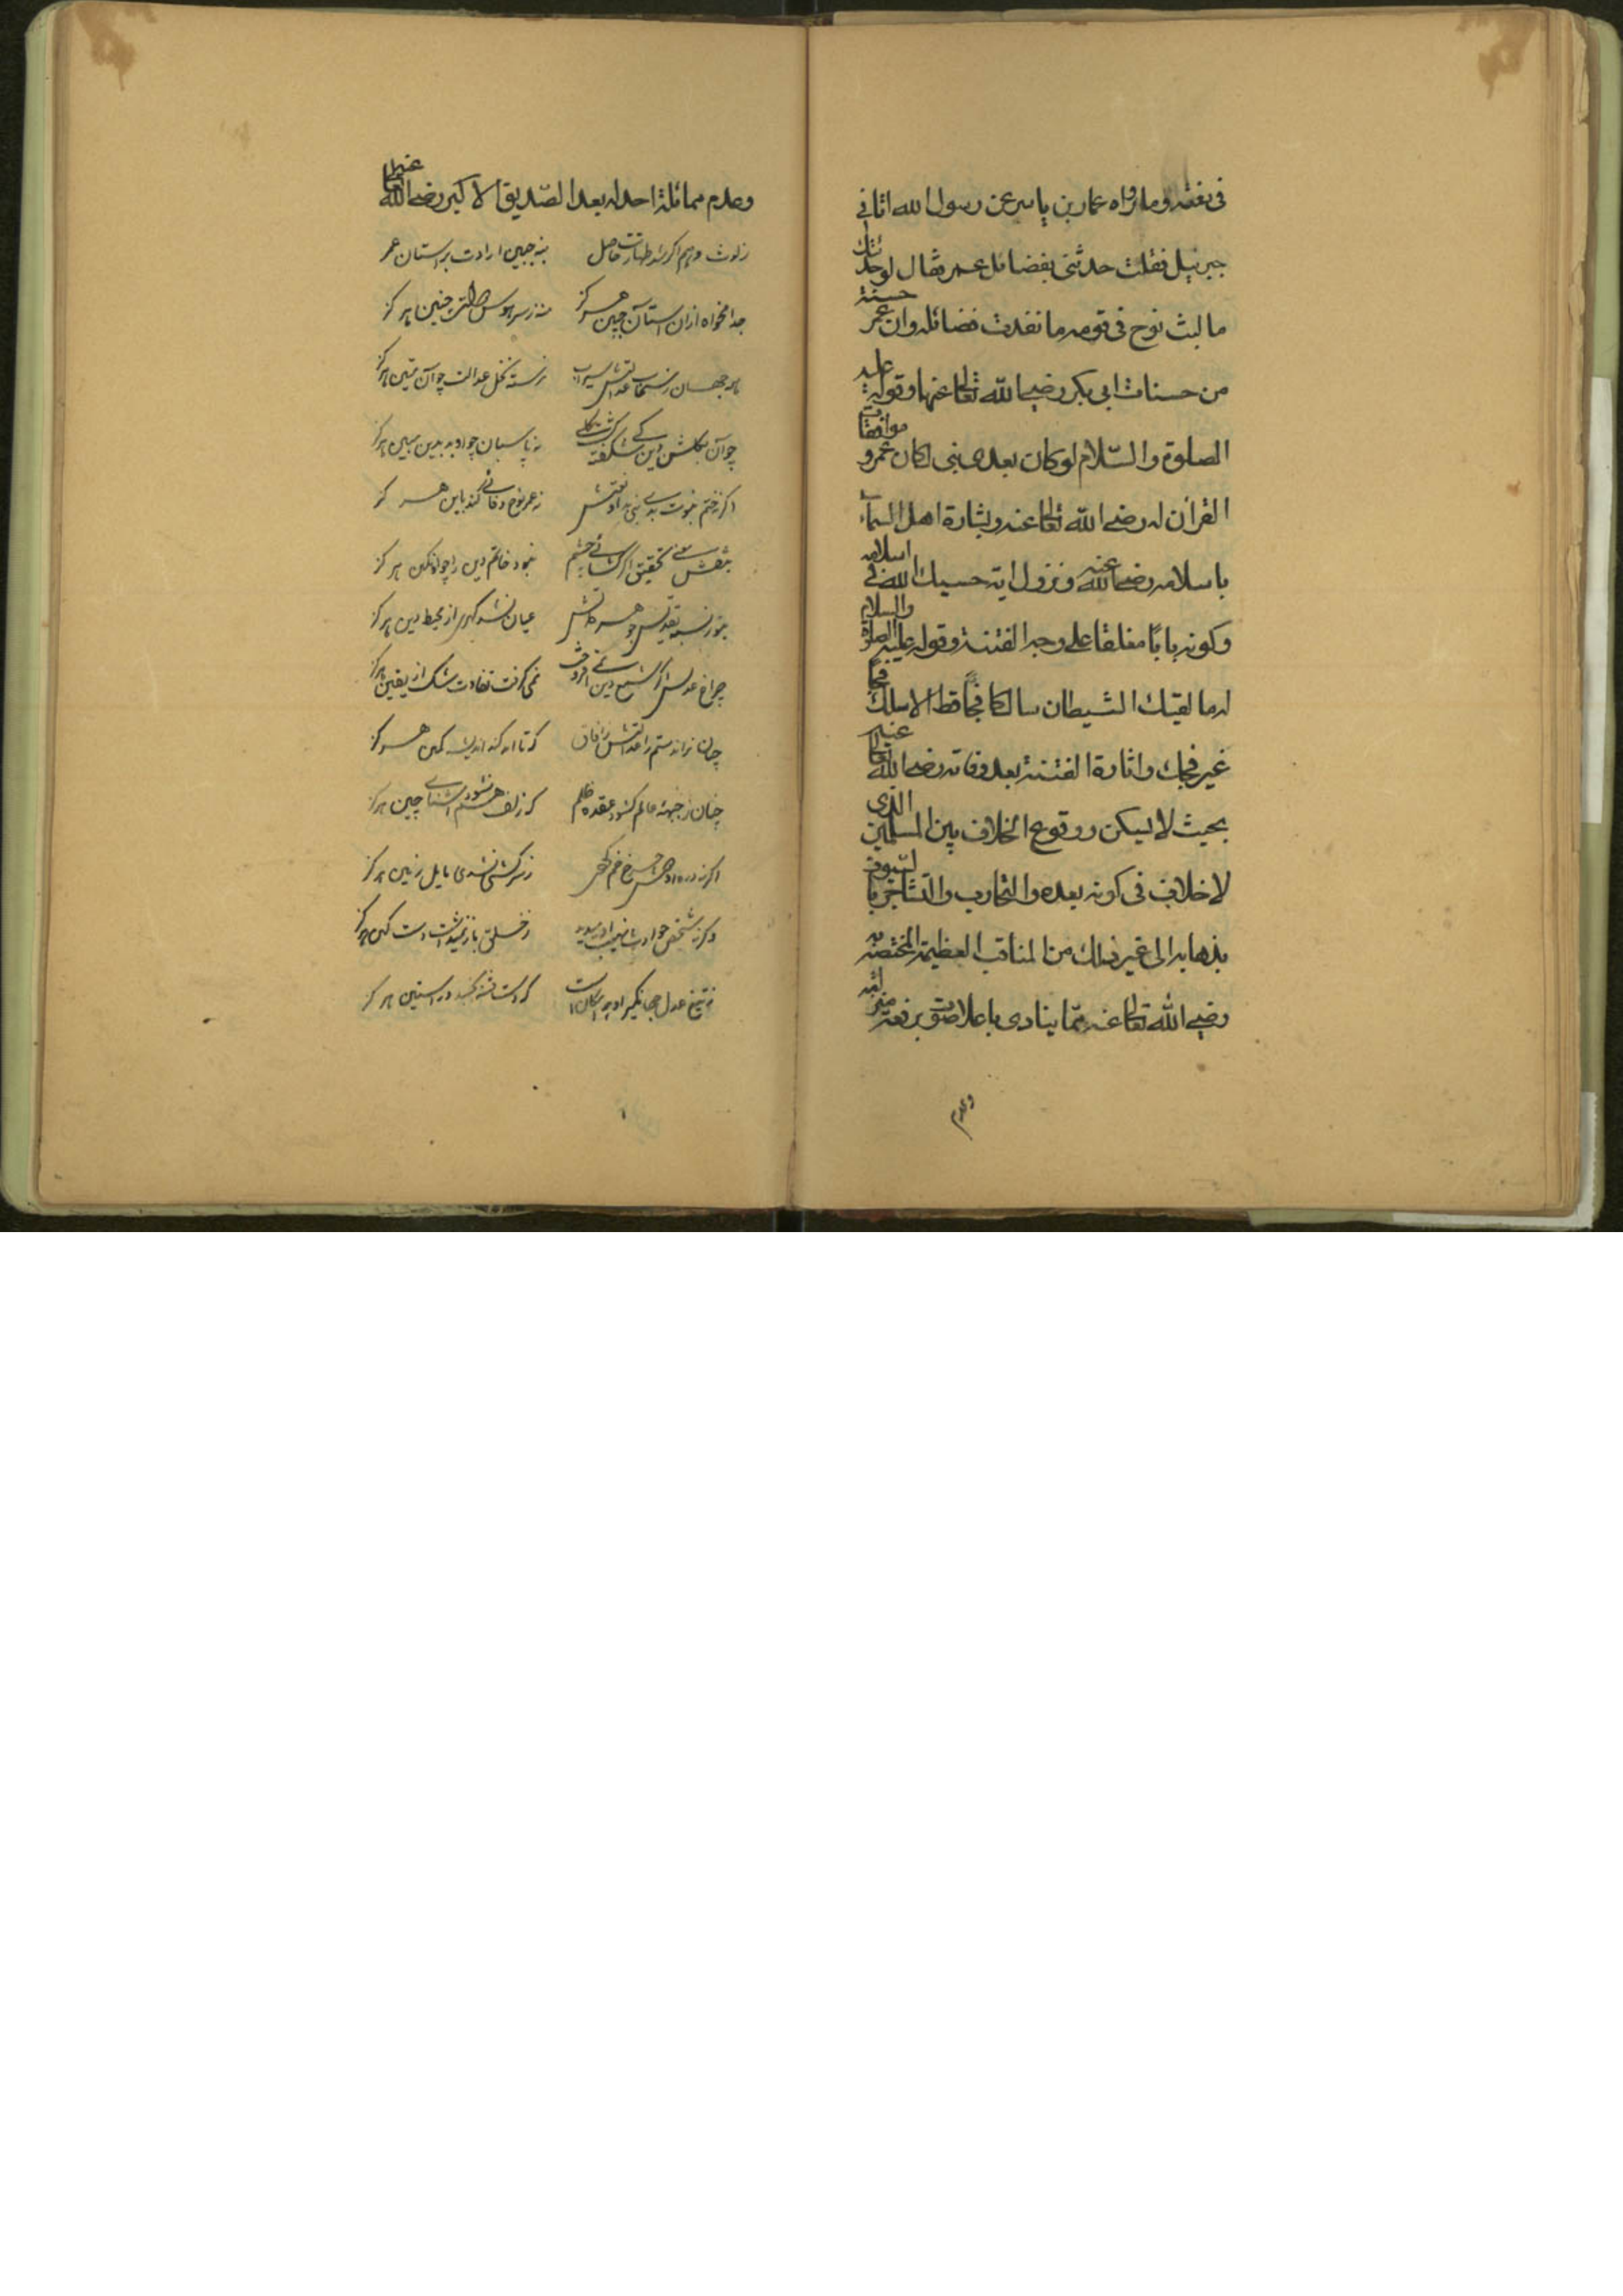 في بغضه وما رواه عمار بن ياسر عن رسول الله اتاني
جبرئيل فقلت حدثني بفضائل عمر فقال لو حدثتك
ما لبث نوح في قومه ما نفدت فضائله وان عمر حسنة
من حسنات ابي بكر رضي الله تعالى عنهما وقوله عليه
الصلوة والسّلام لو كان بعدي نبي لكان عمر و موافقات
القران له رضي الله تعالى عنه وبشارة اهل السماء
باسلامه رضي الله عنه ونزول اية حسبك الله في اسلامه
وكونه بابًا مغلقا على وجه الفتنة وقوله عليه الصلوة والسلام
له ما لقيك الشيطان سالكا فجًا قط الا سلك فجًا
غير فجك واثارة الفتنة بعد وفاته رضي الله تعالى عنه
بحيث لا يسكن ووقوع الخلاف بين المسلمين الذى
لا خلاف في كونه بعده والتحارب والتشاجر
بذهابه الى غير ذلك من المناقب العظيمة المختصة به
رضي الله تعالى عنه ممّا ينادى باعلا صوت برفعة منزلته
وعدم
وعدم مماثلة احد له بعد الصّديق الاكبر رضي الله تعالى عنهما
زلوث وهم اگر شد طهارتت حاصل بنه جبین ارادت بر استان عمر
جدا مخواه ازان استان جبین هرگز منه ز سر هوس چنین هرگز
نرسته نخل عدالت چو آن متین هرگز
چو آن بگلشن دین شکفته نه پاسبان چو او بد بدین مبین هرگز
اگر نه ختم نبوت بدی نبی نه عمر نوح وفائی کند باین هرگز
بنقش سوی تحقیق اگر گشائی چشم نبود خاتم دین را چو او نگین هرگز
عیان نشد گهری از محیط دین هرگز
چراغ عدلش اگر شمع دین نمی گرفت تفاوت شک از یقین هرگز
چنان براند ستم را عدالتش ز افاق که تا ابد کند اندیشه کمین هرگز
چنان ز جبهه عالم گشود عقده ظلم که زلف هم نشود اشنای چین هرگز
ز سرکشی نشدی مایل زمین هرگز
وگر نه شخص حوادث نهیب او میدید
ز تیغ عدل جهانگیر او که دست فتنه در استین هرگز